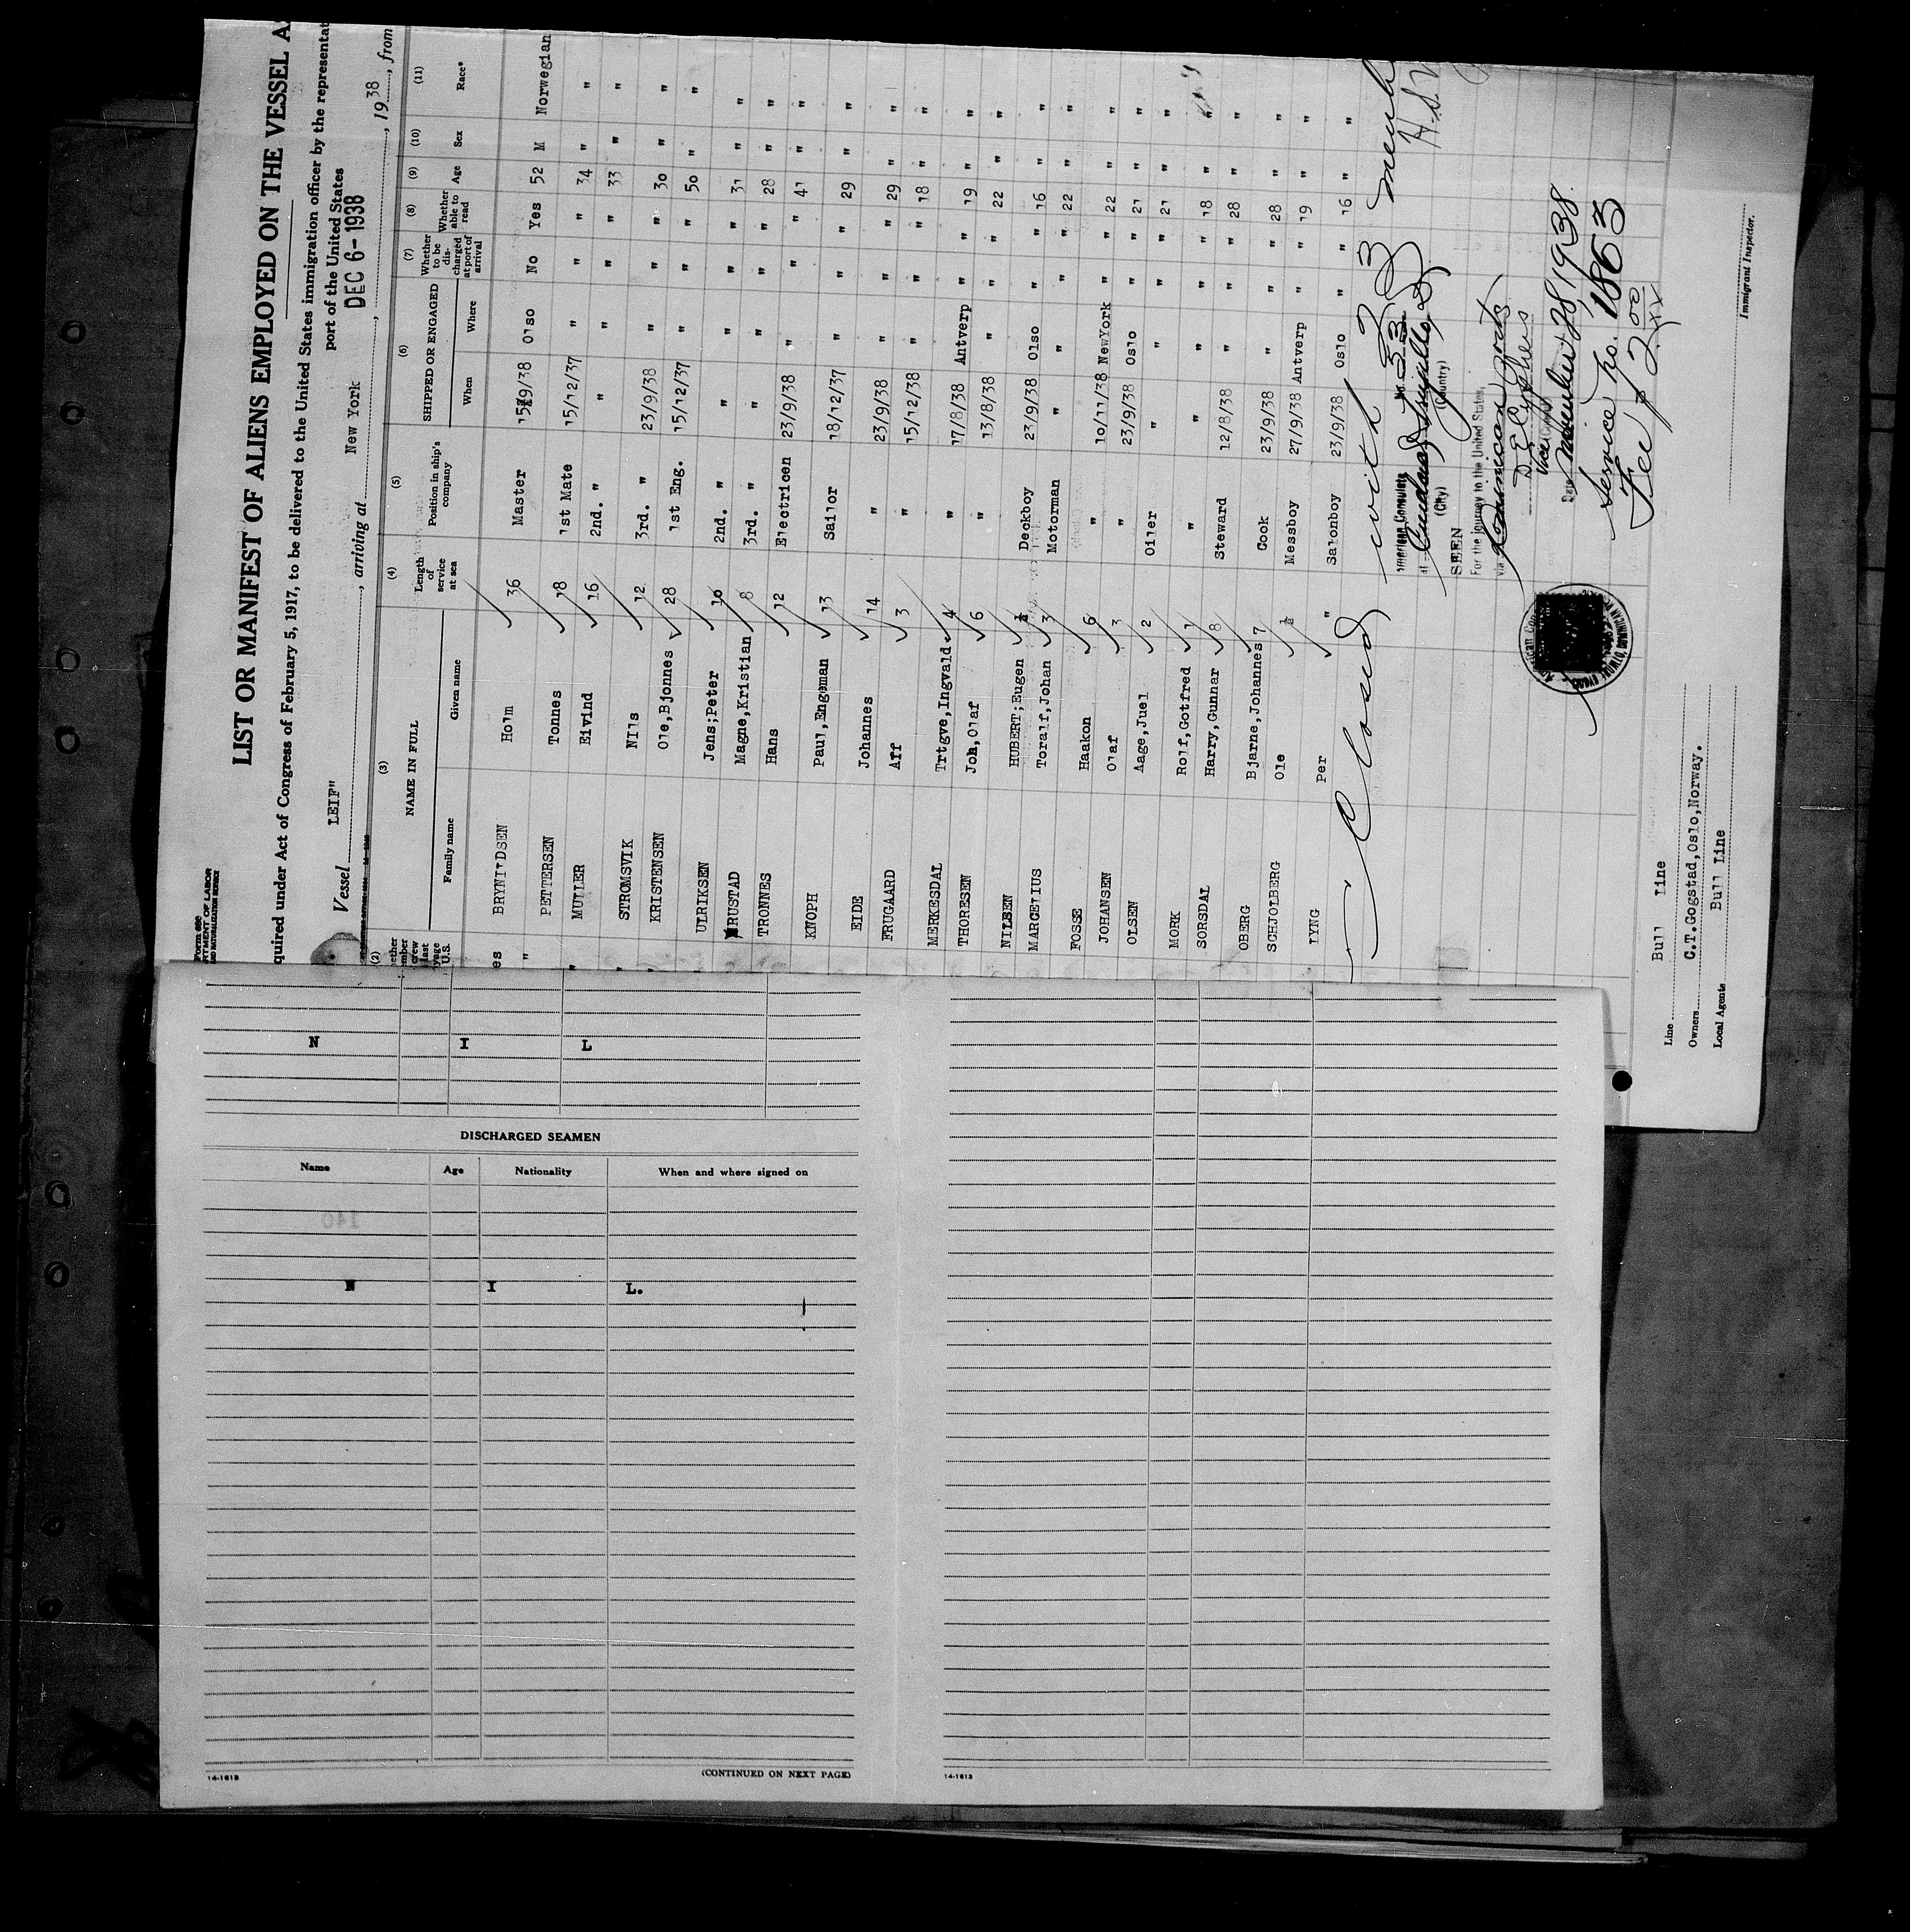 Form 680
LIST OR MANIFEST OF ALIENS EMPLOYED ON THE VESSEL A
quired under Act of Congress of February 5, 1917, to be delivered to the United States immigration officer by the representat
port of the United States
Vessel LEIF" , arriving at New York , DEC 6-1938 , 1938 , from
(2) (3) (4) (5) (6) (7) (8) (9) (10) (11)
NAME IN FULL Length of service at sea Position in ship's company SHIPPED OR ENGAGED Whether to be discharged at port of arrival Whether able to read Age Sex Race*
Family name Given name When Where
es BRYNILDSEN Holm 36 Master 9/38 Olso No Yes 52 M Norwegian
" PETTERSEN Tonnes 18 1st Mate 15/12/37 " " " 34 " "
" MULLER Eivind 16 2nd. " " " " " 33 " "
" STROMSVIK Nils 12 3rd. " 23/9/38 " " " 30 " "
" KRISTENSEN Ole,Bjonnes 28 1st Eng. 15/12/37 " " " 50 " "
ULRIKSEN Jens;Peter 10 2nd. " " " " " 31 " "
RUSTAD Magne,Kristian 8 3rd. " " " " " 28 " "
TRONNES Hans 12 Electricen 23/9/38 " " " 41 " "
KNOPH Paul,Engeman 13 Sailor 18/12/37 " " " 29 " "
EIDE Johannes 14 " 23/9/38 " " " 29 " "
FRUGAARD Alf 3 " 15/12/38 " " " 18 " "
MERKESDAL Trtgve,Ingvald 4 " 17/8/38 Antverp " " 19 " "
THORESEN Joh,Olaf 6 " 13/8/38 " " " 22 " "
NILSEN HUBERT;Eugen ½ Deckboy 23/9/38 Olso " " 16 " "
MARCELIUS Toralf,Johan 3 Motorman " " " " 22 " "
FOSSE Haakon 6 " 10/11/38 NewYork " " 22 " "
JOHANSEN Olaf 3 " 23/9/38 Oslo " " 21 " "
OLSEN Aage,Juel 2 Oiler " " " " 21 " "
MORK Rolf,Gotfred 1 " " " " " 18 " "
SORSDAL Harry,Gunnar 8 Steward 12/8/38 " " " 28 " "
OBERG Bjarne,Johannes 7 Cook 23/9/38 " " " 28 " "
SCHJOLBERG Ole ½ Messboy 27/9/38 Antverp " " 19 " "
LYNG Per " Salonboy 23/9/38 Oslo " " 16 " "
Closed with 23
American Consulate
at Ciudad Trujillo, D.R.
(City) (Country)
SEEN
For the journey to the United States,
via Dominican ports
Vice
Date November 28 1938.
Service No. 1863
Fee $2.00
Line Bull Line
Owners C.T.Gogstad,Oslo,Norway.
Local Agents Bull Line
Immigrant Inspector.
N I L
DISCHARGED SEAMEN
Name Age Nationality When and where signed on
N I L.
14-1613 (CONTINUED ON NEXT PAGE)
14-1613